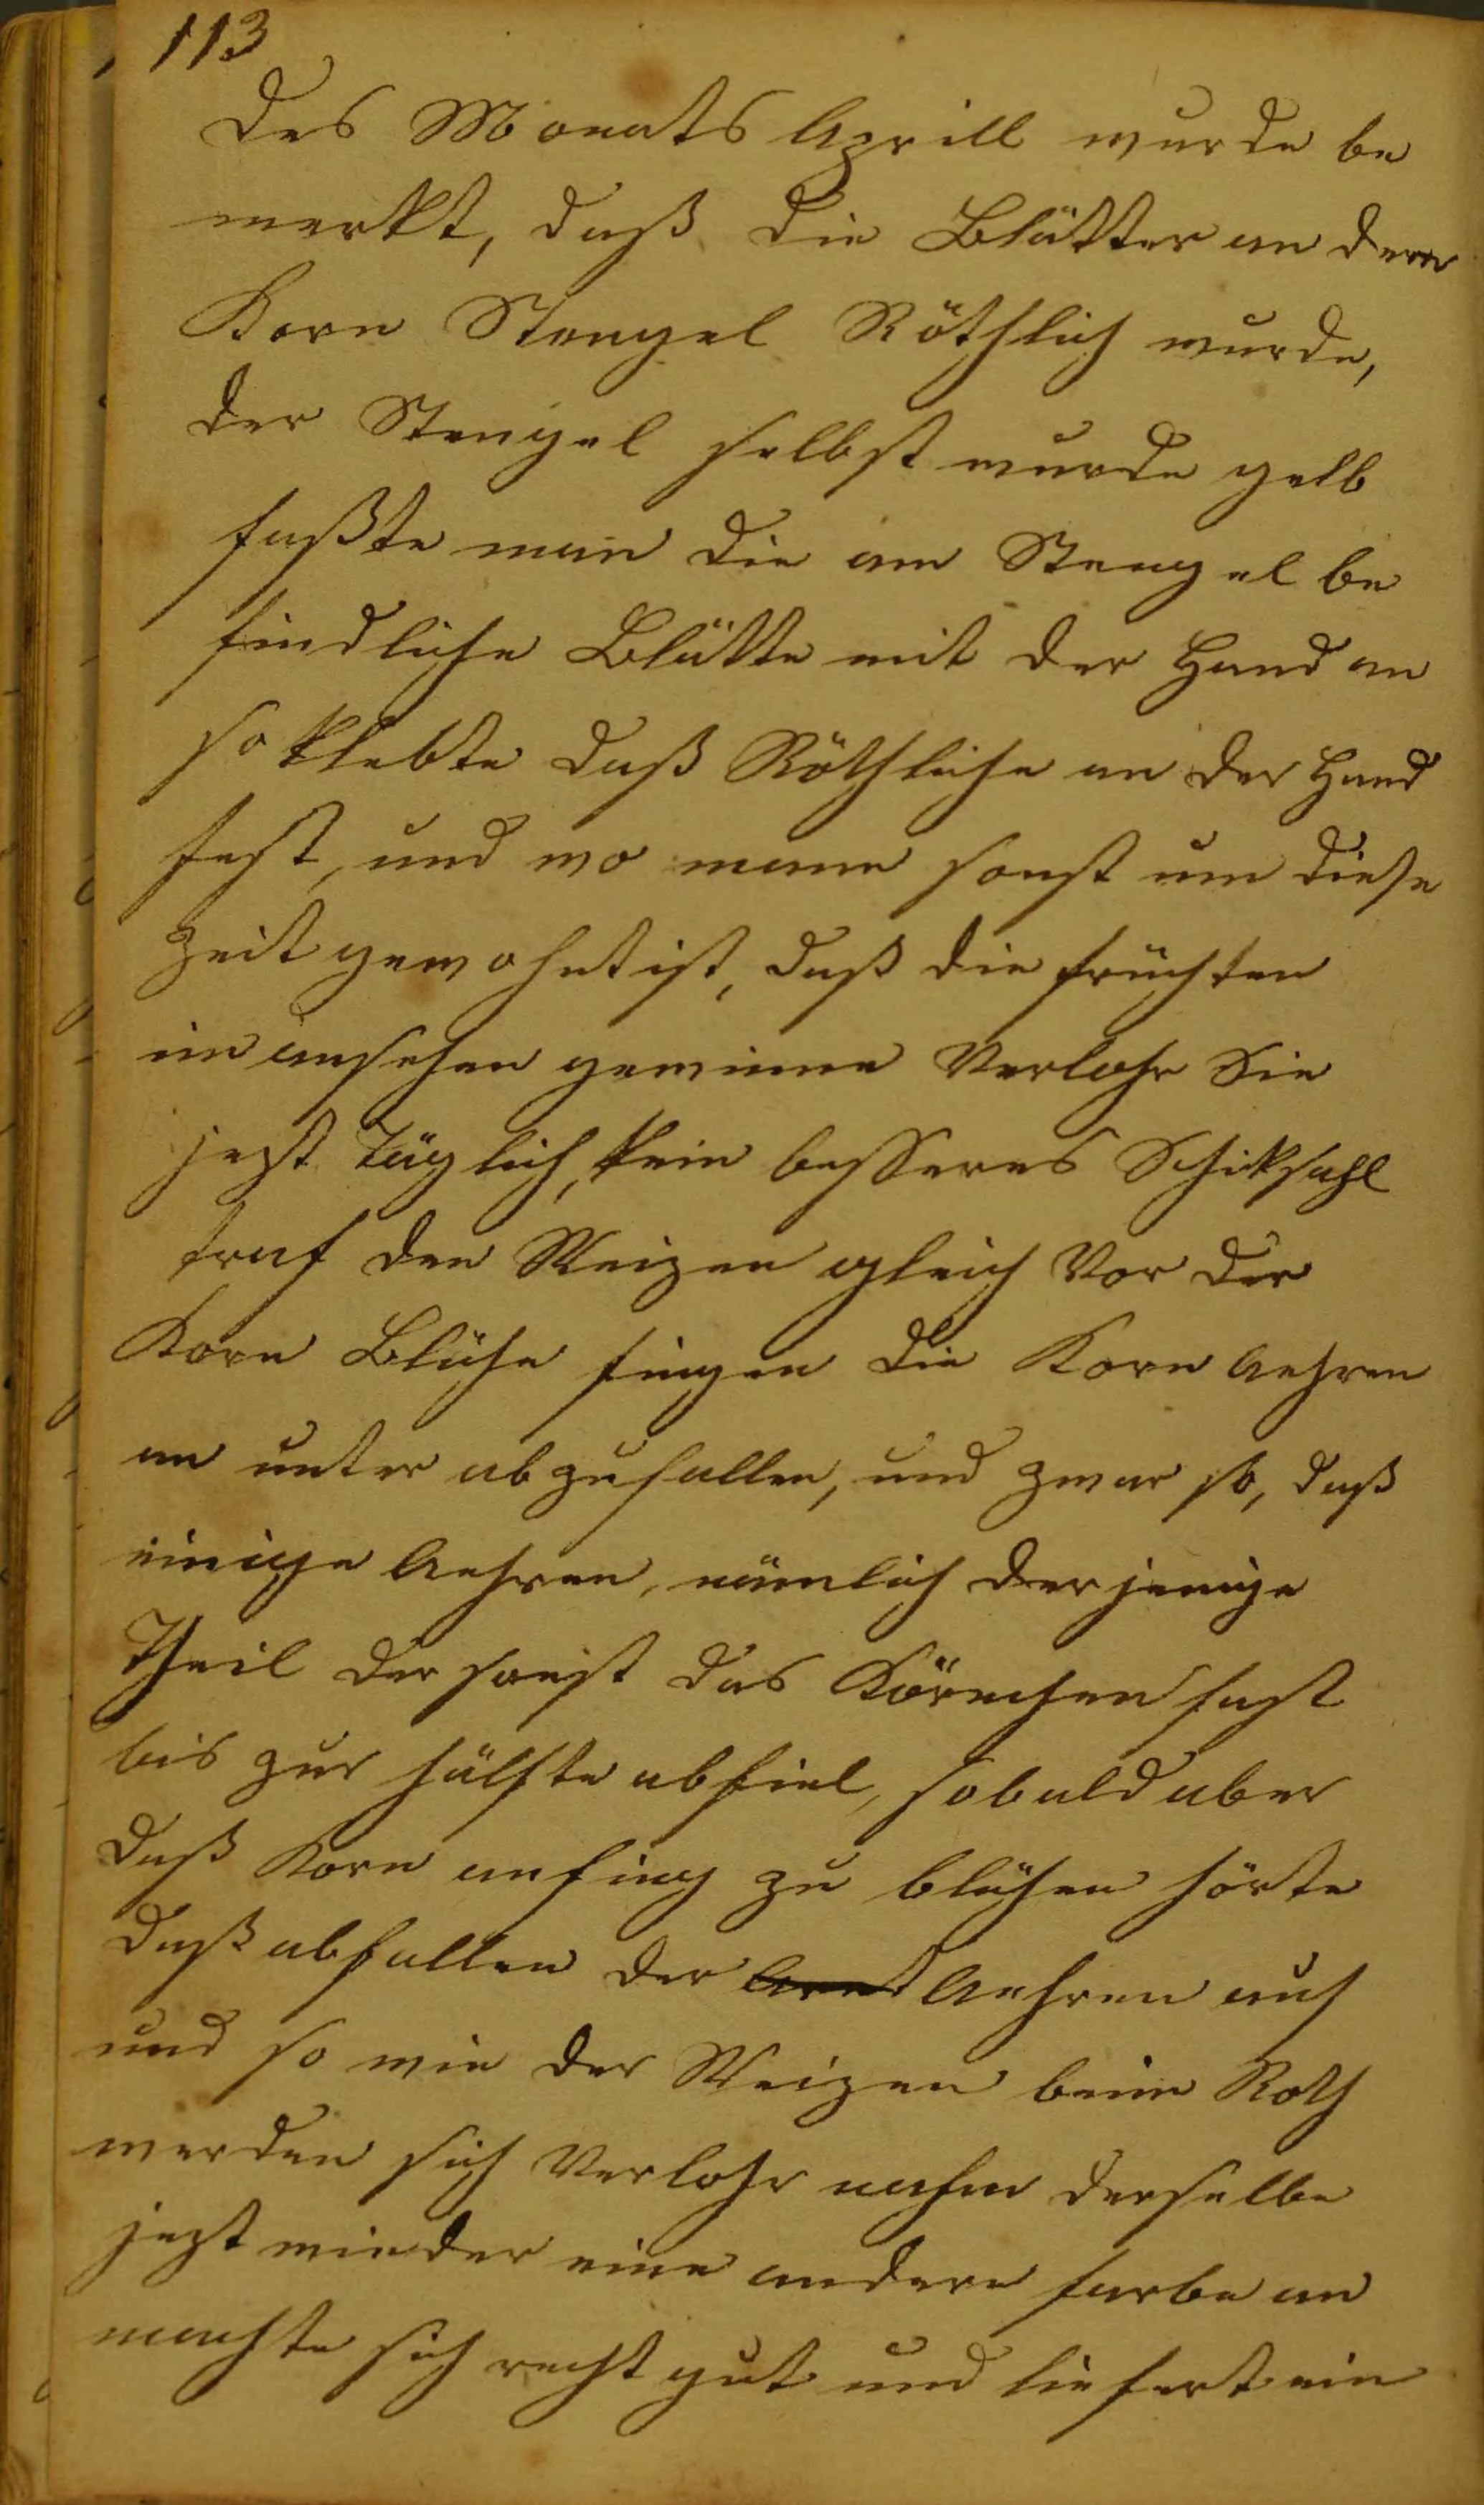 113
des Monats Aprill wurde be
merkt, daß die Blätter an dem
Korn Stengel Röthlich wurde,
der Stengel selbst wurde gelb
faßte man die am Stengel be
findliche Blätte mit der Hand an
so klebte daß Röthliche an der Hand
fest, und wo mann sonst um diese
Zeit gewohnt ist, daß die früchten
im ansehen gewinne Verlohr Sie
jezt Täglich, kein besseres Schiksahl
traf den Weizen gleich Vor der
Korn Blühe fingen die Korn Aehren
an unter abzufallen, und zwar so, daß
einige Aehren, nämlich derjenige
Theil der sonst das Körnchen fast
bis zur hälfte abfiel, sobald aber
daß Korn anfing zu blühen hörte
daß abfallen der Aehren auf
und so wie der Weizen beim Roth
werden sich Verlohr nahm derselbe
jezt wieder eine andere farbe an
machte sich recht gut und liefert ein